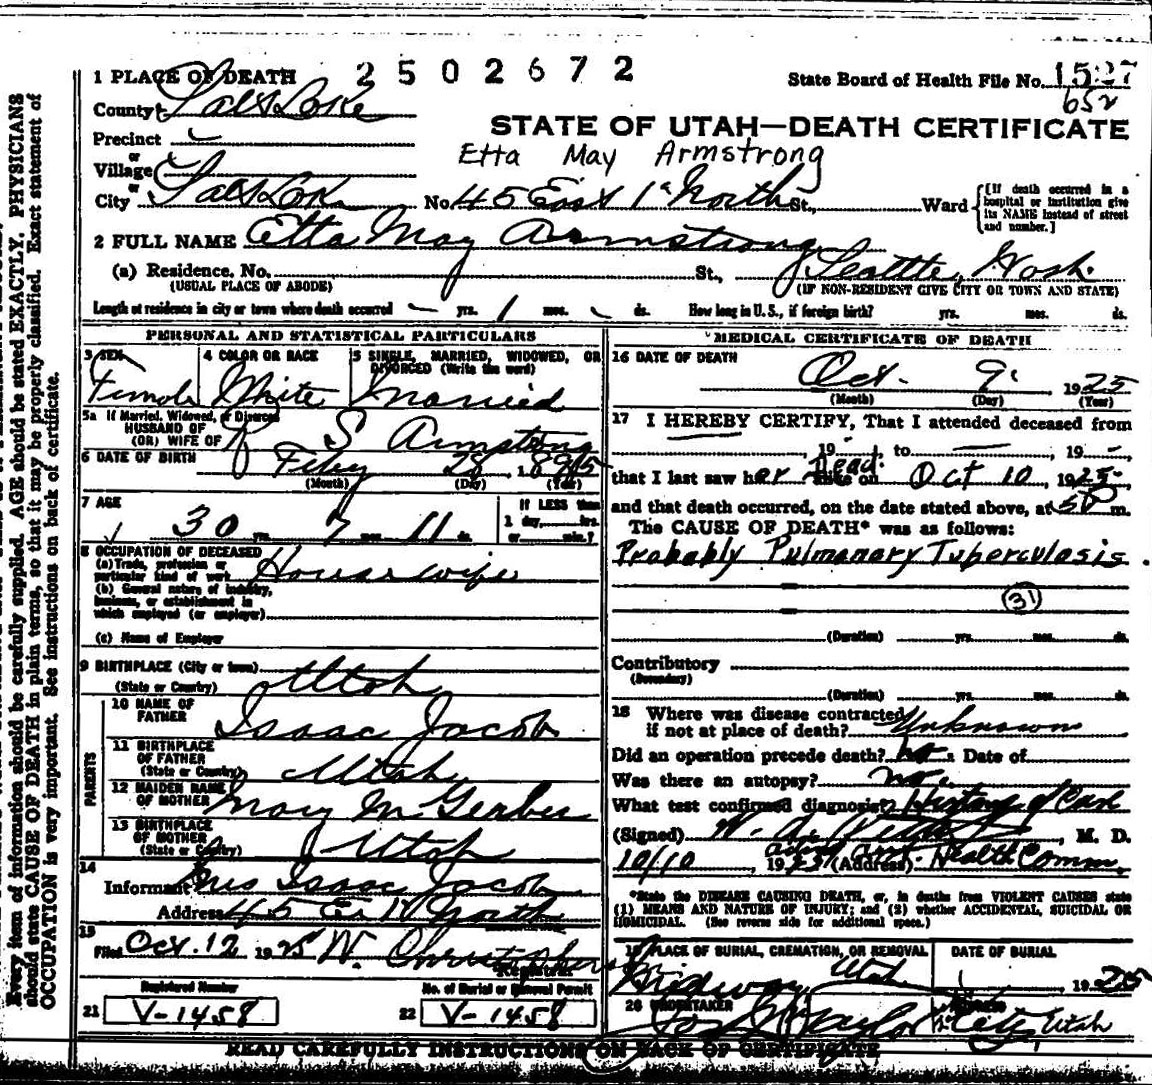 1 PLACE OF DEATH 2502672 State Board of Health File No. 1527
County Salt Lake 652
STATE OF UTAH—DEATH CERTIFICATE
Precinct
or
Village Etta May Armstrong
or
City Salt Lake No. 45 East 1st North St., Ward
[If death occurred in a hospital or institution give its NAME instead of street and number.]
2 FULL NAME Etta May Armstrong
(a) Residence. No. St., Seattle, Wash.
(USUAL PLACE OF ABODE) (IF NON-RESIDENT GIVE CITY OR TOWN AND STATE)
Length of residence in city or town where death occurred yrs. 1 mos. ds. How long in U. S., if foreign birth? yrs. mos. ds.
PERSONAL AND STATISTICAL PARTICULARS
3 SEX 4 COLOR OR RACE 5 SINGLE, MARRIED, WIDOWED, OR DIVORCED (Write the word)
Female White Married
5a If Married, Widowed, or Divorced
HUSBAND OF
(OR) WIFE OF R S Armstrong
6 DATE OF BIRTH Feby 28 1895
(Month) (Day) (Year)
7 AGE If LESS than
30 yrs. 7 mos. 11 ds. 1 day, hrs.
or min.?
8 OCCUPATION OF DECEASED
(a) Trade, profession or
particular kind of work Housewife
(b) General nature of industry,
business, or establishment in
which employed (or employer)
(c) Name of Employer
9 BIRTHPLACE (City or town)
(State or Country) Utah
PARENTS
10 NAME OF
FATHER Isaac Jacob
11 BIRTHPLACE
OF FATHER
(State or Country) Utah
12 MAIDEN NAME
OF MOTHER Mary M Gerber
13 BIRTHPLACE
OF MOTHER
(State or Country) Utah
14
Informant Mrs Isaac Jacob
Address 45 E 1st North
15
Filed Oct. 12 1925 W. Christopherson
Registrar
Registered Number No. of Burial or Removal Permit
21 V-1458 22 V-1458
MEDICAL CERTIFICATE OF DEATH
16 DATE OF DEATH
Oct. 9 1925
(Month) (Day) (Year)
17 I HEREBY CERTIFY, That I attended deceased from
, 19 , to , 19 ,
that I last saw her Dead on Oct 10, 1925
and that death occurred, on the date stated above, at 5 P m.
The CAUSE OF DEATH* was as follows:
Probably Pulmonary Tuberculosis.
31
(Duration) yrs. mos. ds.
Contributory
(Secondary)
(Duration) yrs. mos. ds.
18 Where was disease contracted
if not at place of death? Unknown
Did an operation precede death? no Date of
Was there an autopsy? no.
What test confirmed diagnosis? History of Case
(Signed) W. A. , M. D.
10/10 1925 (Address) Health Comm.
*State the DISEASE CAUSING DEATH, or, in deaths from VIOLENT CAUSES state
(1) MEANS AND NATURE OF INJURY; and (2) whether ACCIDENTAL, SUICIDAL OR
HOMICIDAL. (See reverse side for additional space.)
19 PLACE OF BURIAL, CREMATION, OR REMOVAL DATE OF BURIAL
Midway, Utah 1925
20 UNDERTAKER ADDRESS
Jos Taylor City, Utah
READ CAREFULLY INSTRUCTIONS ON BACK OF CERTIFICATE
Every item of information should be carefully supplied. AGE should be stated EXACTLY. PHYSICIANS
should state CAUSE OF DEATH in plain terms, so that it may be properly classified. Exact statement of
OCCUPATION is very important. See instructions on back of certificate.